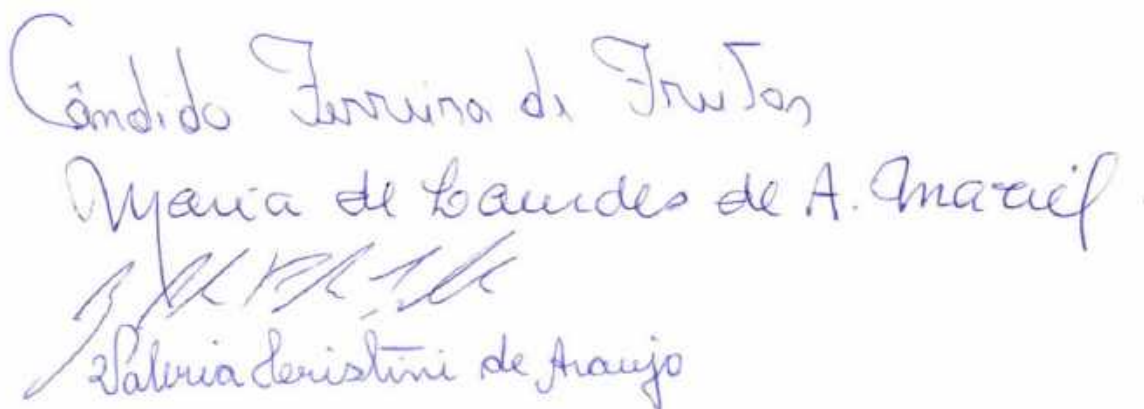 Cândido Ferreira de Freitas
Maria de Lourdes de A. Maciel
Valeria Cristini de Araujo